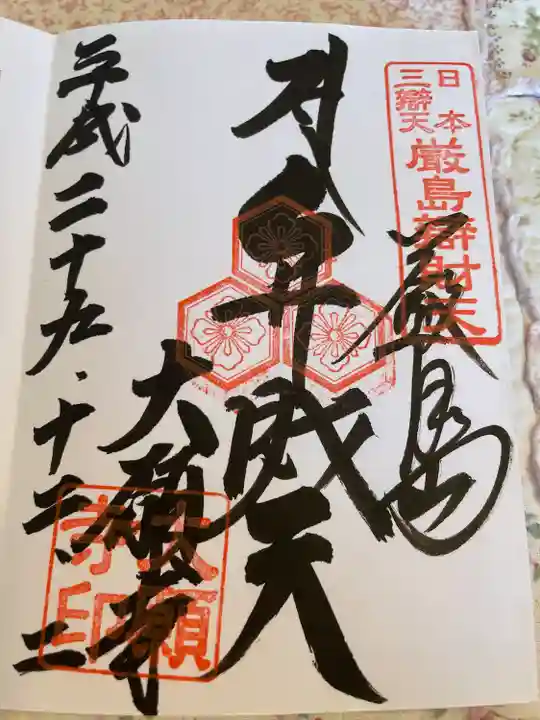 日本
三辯天
厳島辯財天
厳島
弁財天
大願寺
大願寺印
平成二十九・十二・二